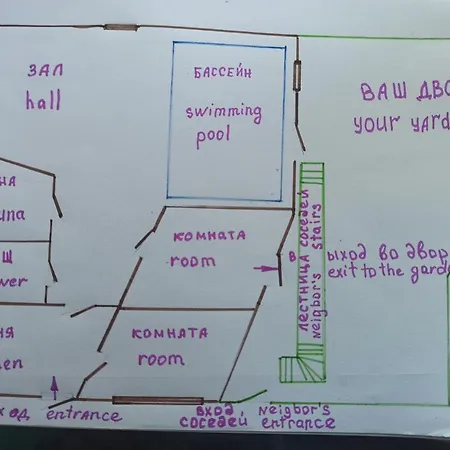 ЗАЛ
hall
БАССЕЙН
swimming
pool
ВАШ ДВО
your yard
НА
una
Щ
wer
КОМНАТА
room
ЛЕСТНИЦА СОСЕДЕЙ
Neigbor's stairs
ВЫХОД ВО ДВОР
exit to the garde
НЯ
en
КОМНАТА
room
ХОД entrance
ВХОД СОСЕДЕЙ
Neigbor's entrance